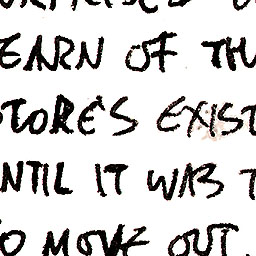 EARN OF TH
TORE'S EXIST
NTIL IT WAS T
O MOVE OUT.